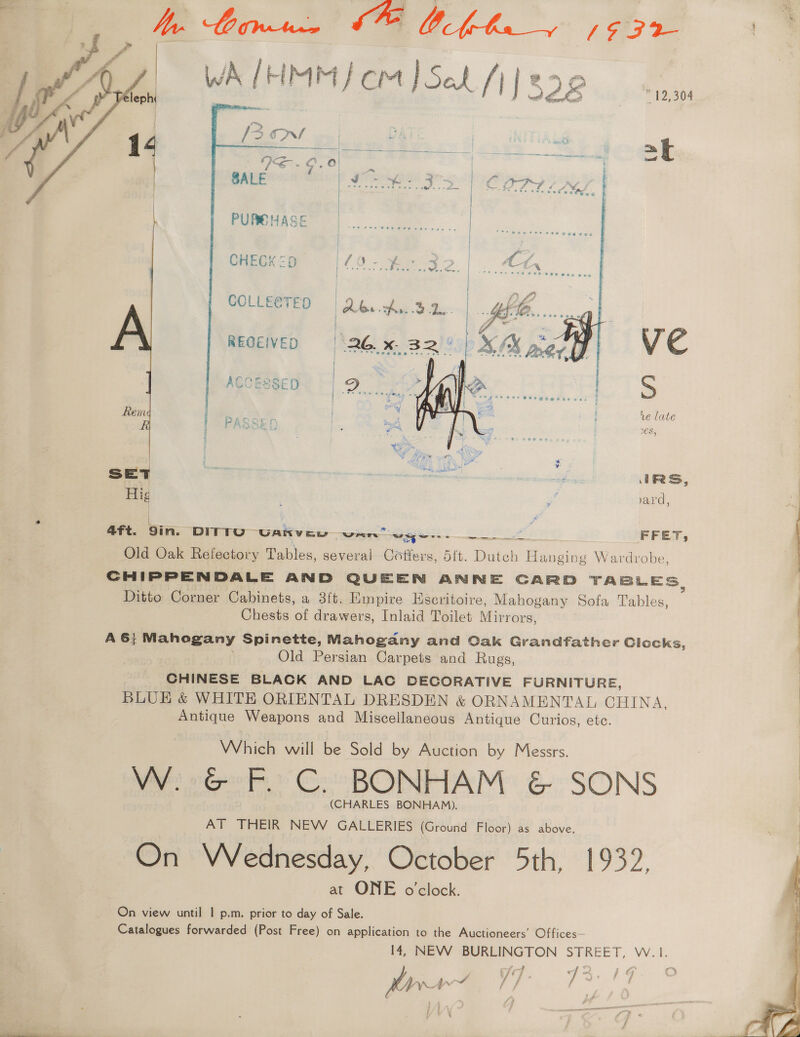 Mr Comins 5th October 1932
WA/HMM/CM/Sal/1/328
Teleph
12,304
BON DATE INITIALS
14 et
78.9.0
SALE 5.X.32 COMINS.
PURCHASE
CHECKED 10.X.32
COLLECTED 26.X.32
A RECEIVED 26.X.32 ve
ACCESSED S
Remo he late
R PASSED ces,
SET IRS,
Hig oard,
4ft. 9in. DITTO CARVED OAK FFET,
Old Oak Refectory Tables, several Coffers, 5ft. Dutch Hanging Wardrobe,
CHIPPENDALE AND QUEEN ANNE CARD TABLES,
Ditto Corner Cabinets, a 3ft. Empire Escritoire, Mahogany Sofa Tables,
Chests of drawers, Inlaid Toilet Mirrors,
A 6½ Mahogany Spinette, Mahogany and Oak Grandfather Clocks,
Old Persian Carpets and Rugs,
CHINESE BLACK AND LAC DECORATIVE FURNITURE,
BLUE & WHITE ORIENTAL DRESDEN & ORNAMENTAL CHINA,
Antique Weapons and Miscellaneous Antique Curios, etc.
Which will be Sold by Auction by Messrs.
W. & F. C. BONHAM & SONS
(CHARLES BONHAM).
AT THEIR NEW GALLERIES (Ground Floor) as above,
On Wednesday, October 5th, 1932,
at ONE o'clock.
On view until 1 p.m. prior to day of Sale.
Catalogues forwarded (Post Free) on application to the Auctioneers' Offices—
14, NEW BURLINGTON STREET, W.1.
77. 73. 19. 0
9 4 10
78. 9. 0